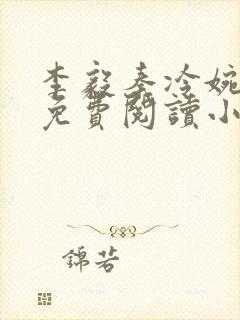 李毅秦冷婉
免費閱讀小
錦若